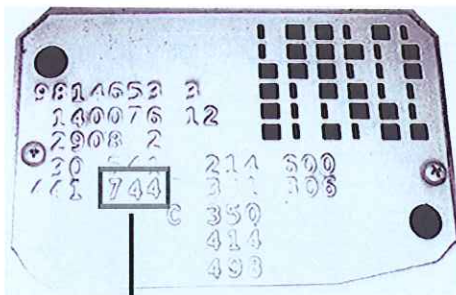 9814653 3
140076 12
2908 2
30 214 600
744 306
C 350
414
498